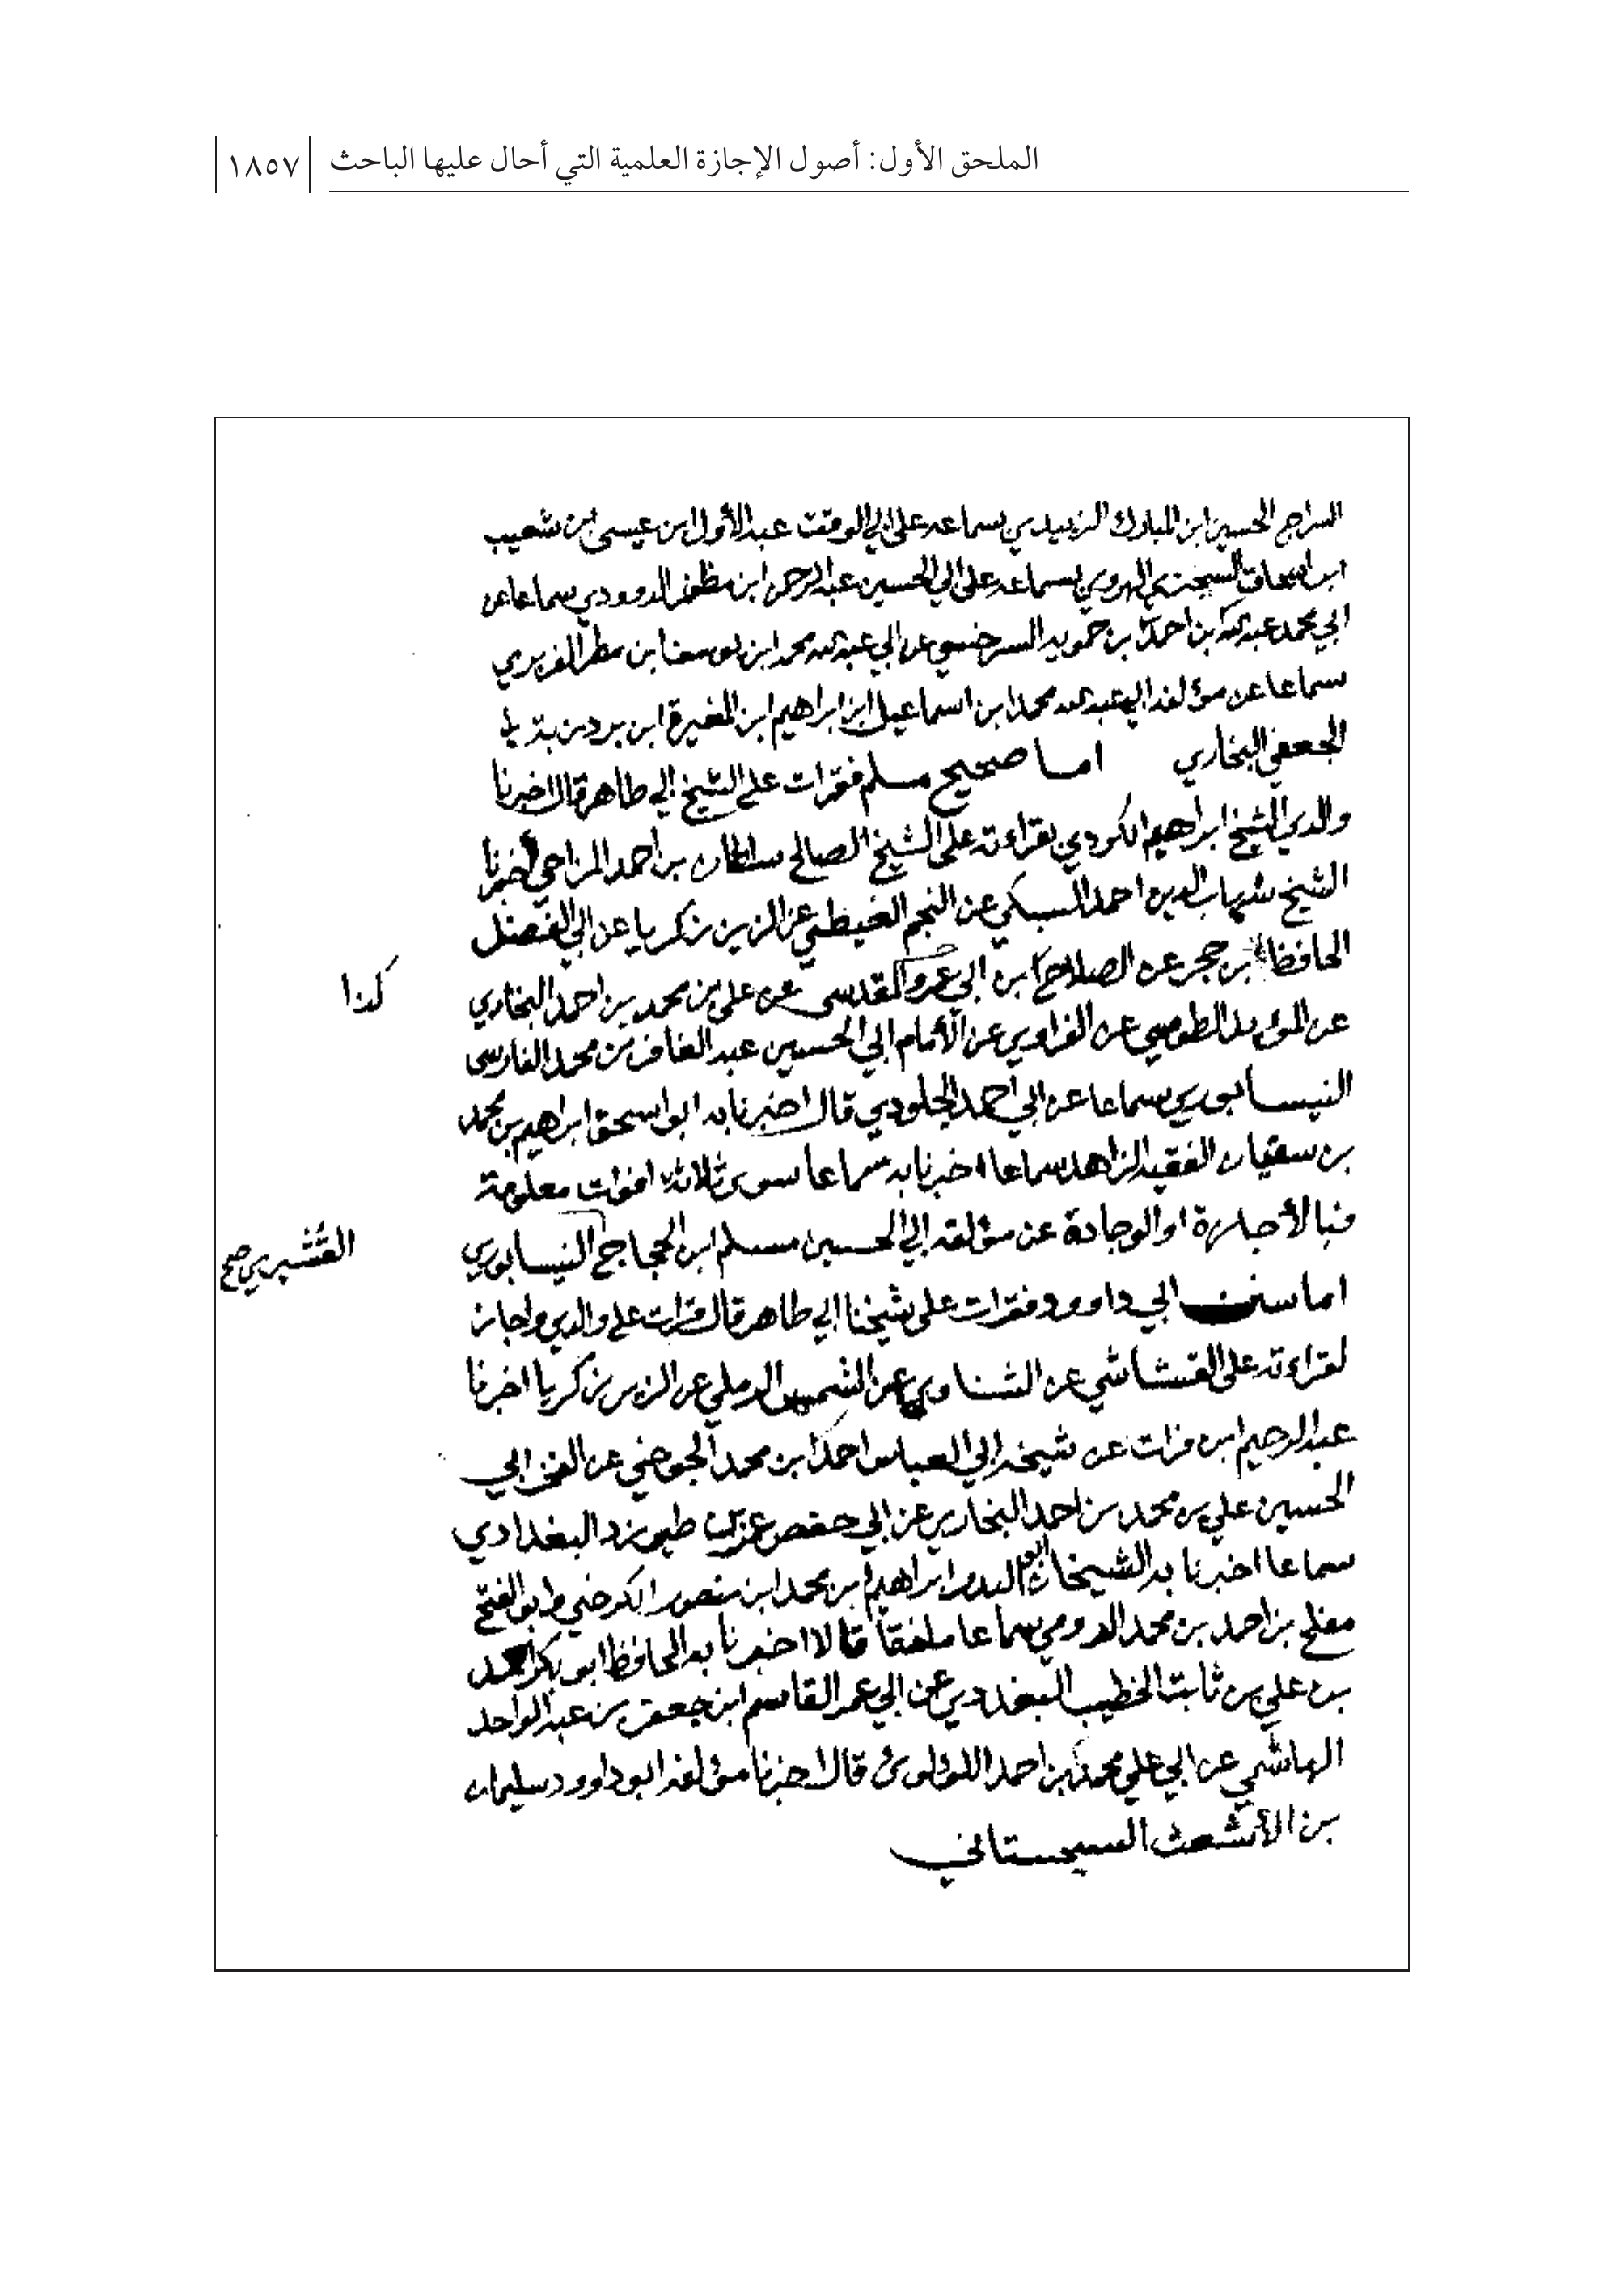 الملحق الأول: أصول الإجازة العلمية التي أحال عليها الباحث ١٨٥٧
السراج الحسين ابن المبارك الزبيدي بسماعه على ابي الوقت عبد الأول ابن عيسى ابن شعيب
ابن اسحاق السجزي الهروي بسماعه على ابي الحسين عبد الرحمن ابن مظفر الداوودي سماعا عن
ابي محمد عبد الله بن احمد بن حمويه السرخسي عن ابي عبد الله محمد ابن يوسف ابن مطر الفربري
سماعا عن مؤلفه ابي عبد الله محمد ابن اسماعيل ابن ابراهيم ابن المغيرة ابن بردزبة
الجعفي البخاري اما صحيح مسلم فقرات على الشيخ ابي طاهر قال اخبرنا
والدي الشيخ ابراهيم الكردي بقراءته على الشيخ الصالح سلطان بن احمد المزاحي أخبرنا
الشيخ شهاب الدين احمد السبكي عن النجم الغيطي عن الزين زكريا عن ابي الفضل
الحافظ ابن حجر عن الصلاح ابن ابي عمرو المقدسي عن علي بن محمد بن احمد البخاري
كذا
عن المؤيد الطوسي عن الفراوي عن الأمام ابي الحسين عبد الغافر بن محمد الفارسي
النيسابوري سماعا عن ابي احمد الجلودي قال اخبرنا به ابو اسحق ابراهيم بن محمد
بن سفيان الفقيه الزاهد سماعا اخبرنا به سماعا سوى ثلاثة افوات معلومة
فبالأجازة او الوجادة عن مؤلفه ابي الحسين مسلم ابن الحجاج النيسابوري
القشيري صح
اما سنن ابي داوود فقرات على شيخنا ابي طاهر قال قرات على والدي واجازة
لقراءته على القشاشي عن الشناوي عن الشمس الرملي عن الزين زكريا اخبرنا
عبد الرحيم ابن فرات عن شيخه ابي العباس احمد ابن محمد الجوخي عن الفخر ابي
الحسين علي بن محمد بن احمد البخاري عن ابي حفص عمر بن طبرزد البغدادي
سماعا اخبرنا به الشيخان ابو البدر ابراهيم ابن محمد ابن منصور الكرخي وابو الفتح
مفلح بن احمد بن محمد الدومي سماعا ملفقا قالا اخبرنا به الحافظ ابو بكر احمد
بن علي بن ثابت الخطيب البغدادي عن ابي عمر القاسم ابن جعفر بن عبد الواحد
الهاشمي عن ابي علي محمد بن احمد اللؤلوئ قال اخبرنا مؤلفه ابو داوود سليمان
بن الأشعث السجستاني